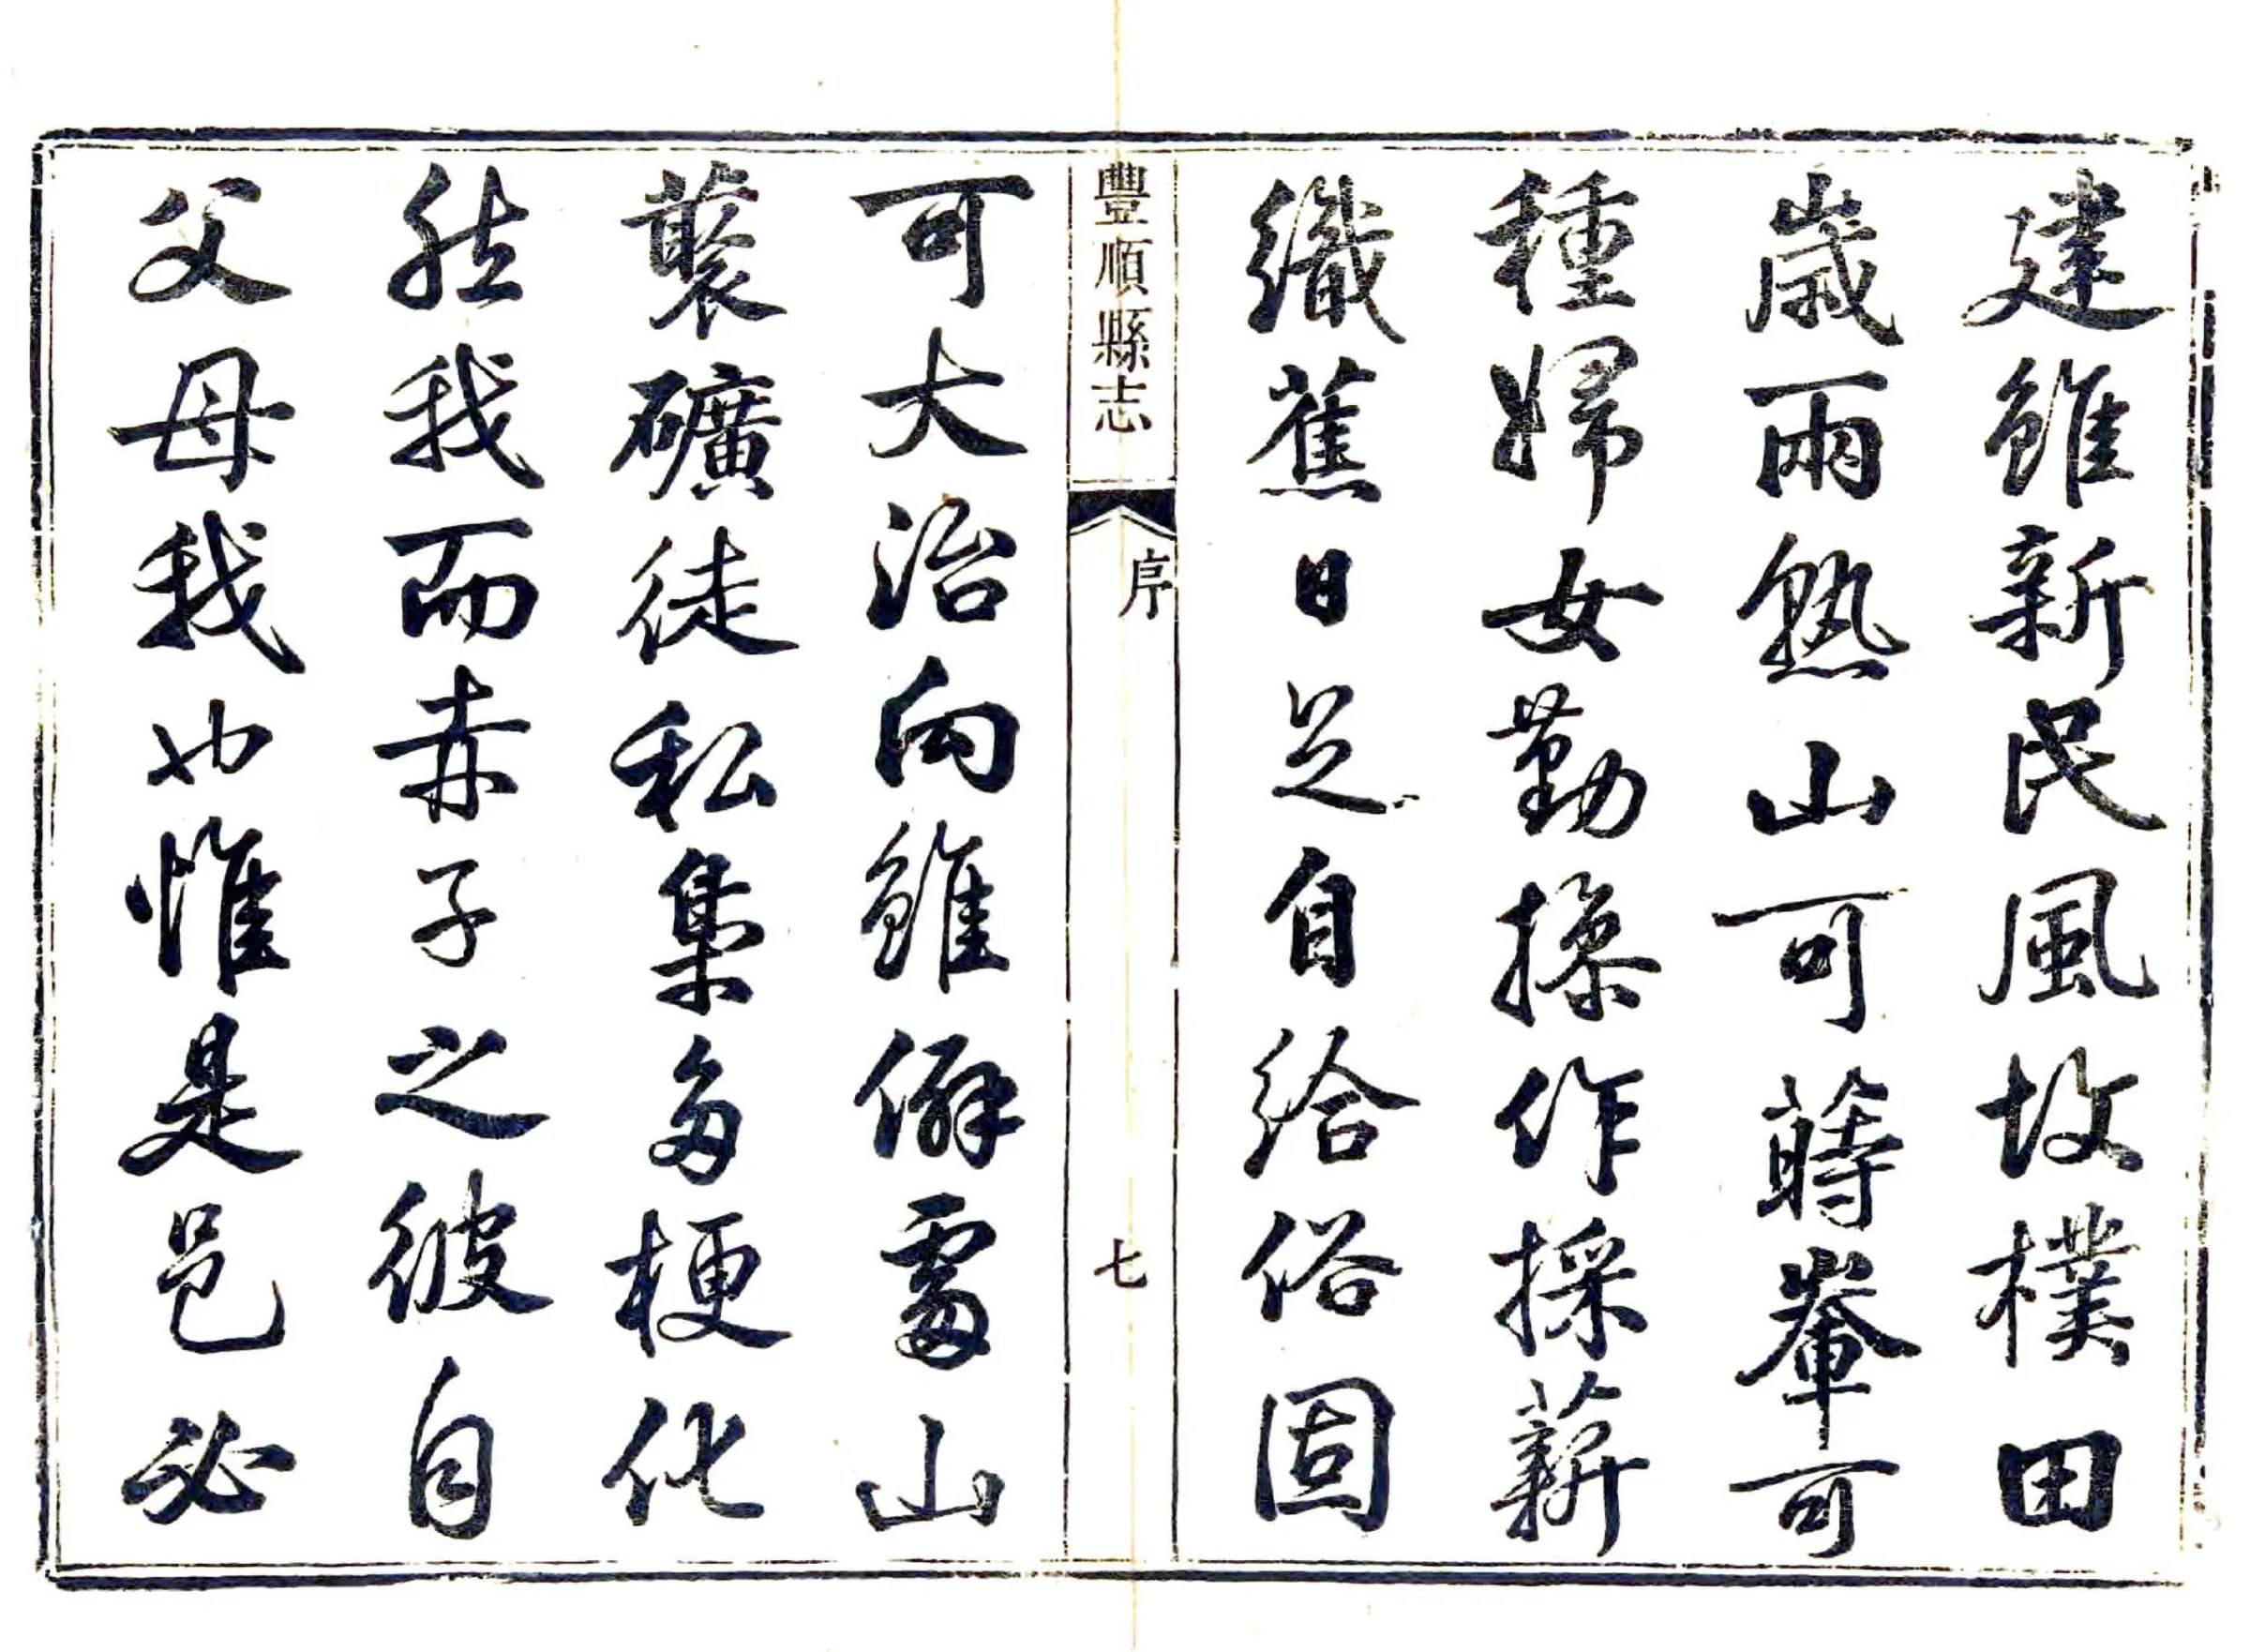 建雖新民風故樸田
歲兩熟山可蒔輋可
種婦女勤操作採薪
織蕉日足自給俗固
豐順縣志 序 七
可大治向雖僻處山
藂礦徒私集多梗化
然我而赤子之彼自
父母我也惟是邑必